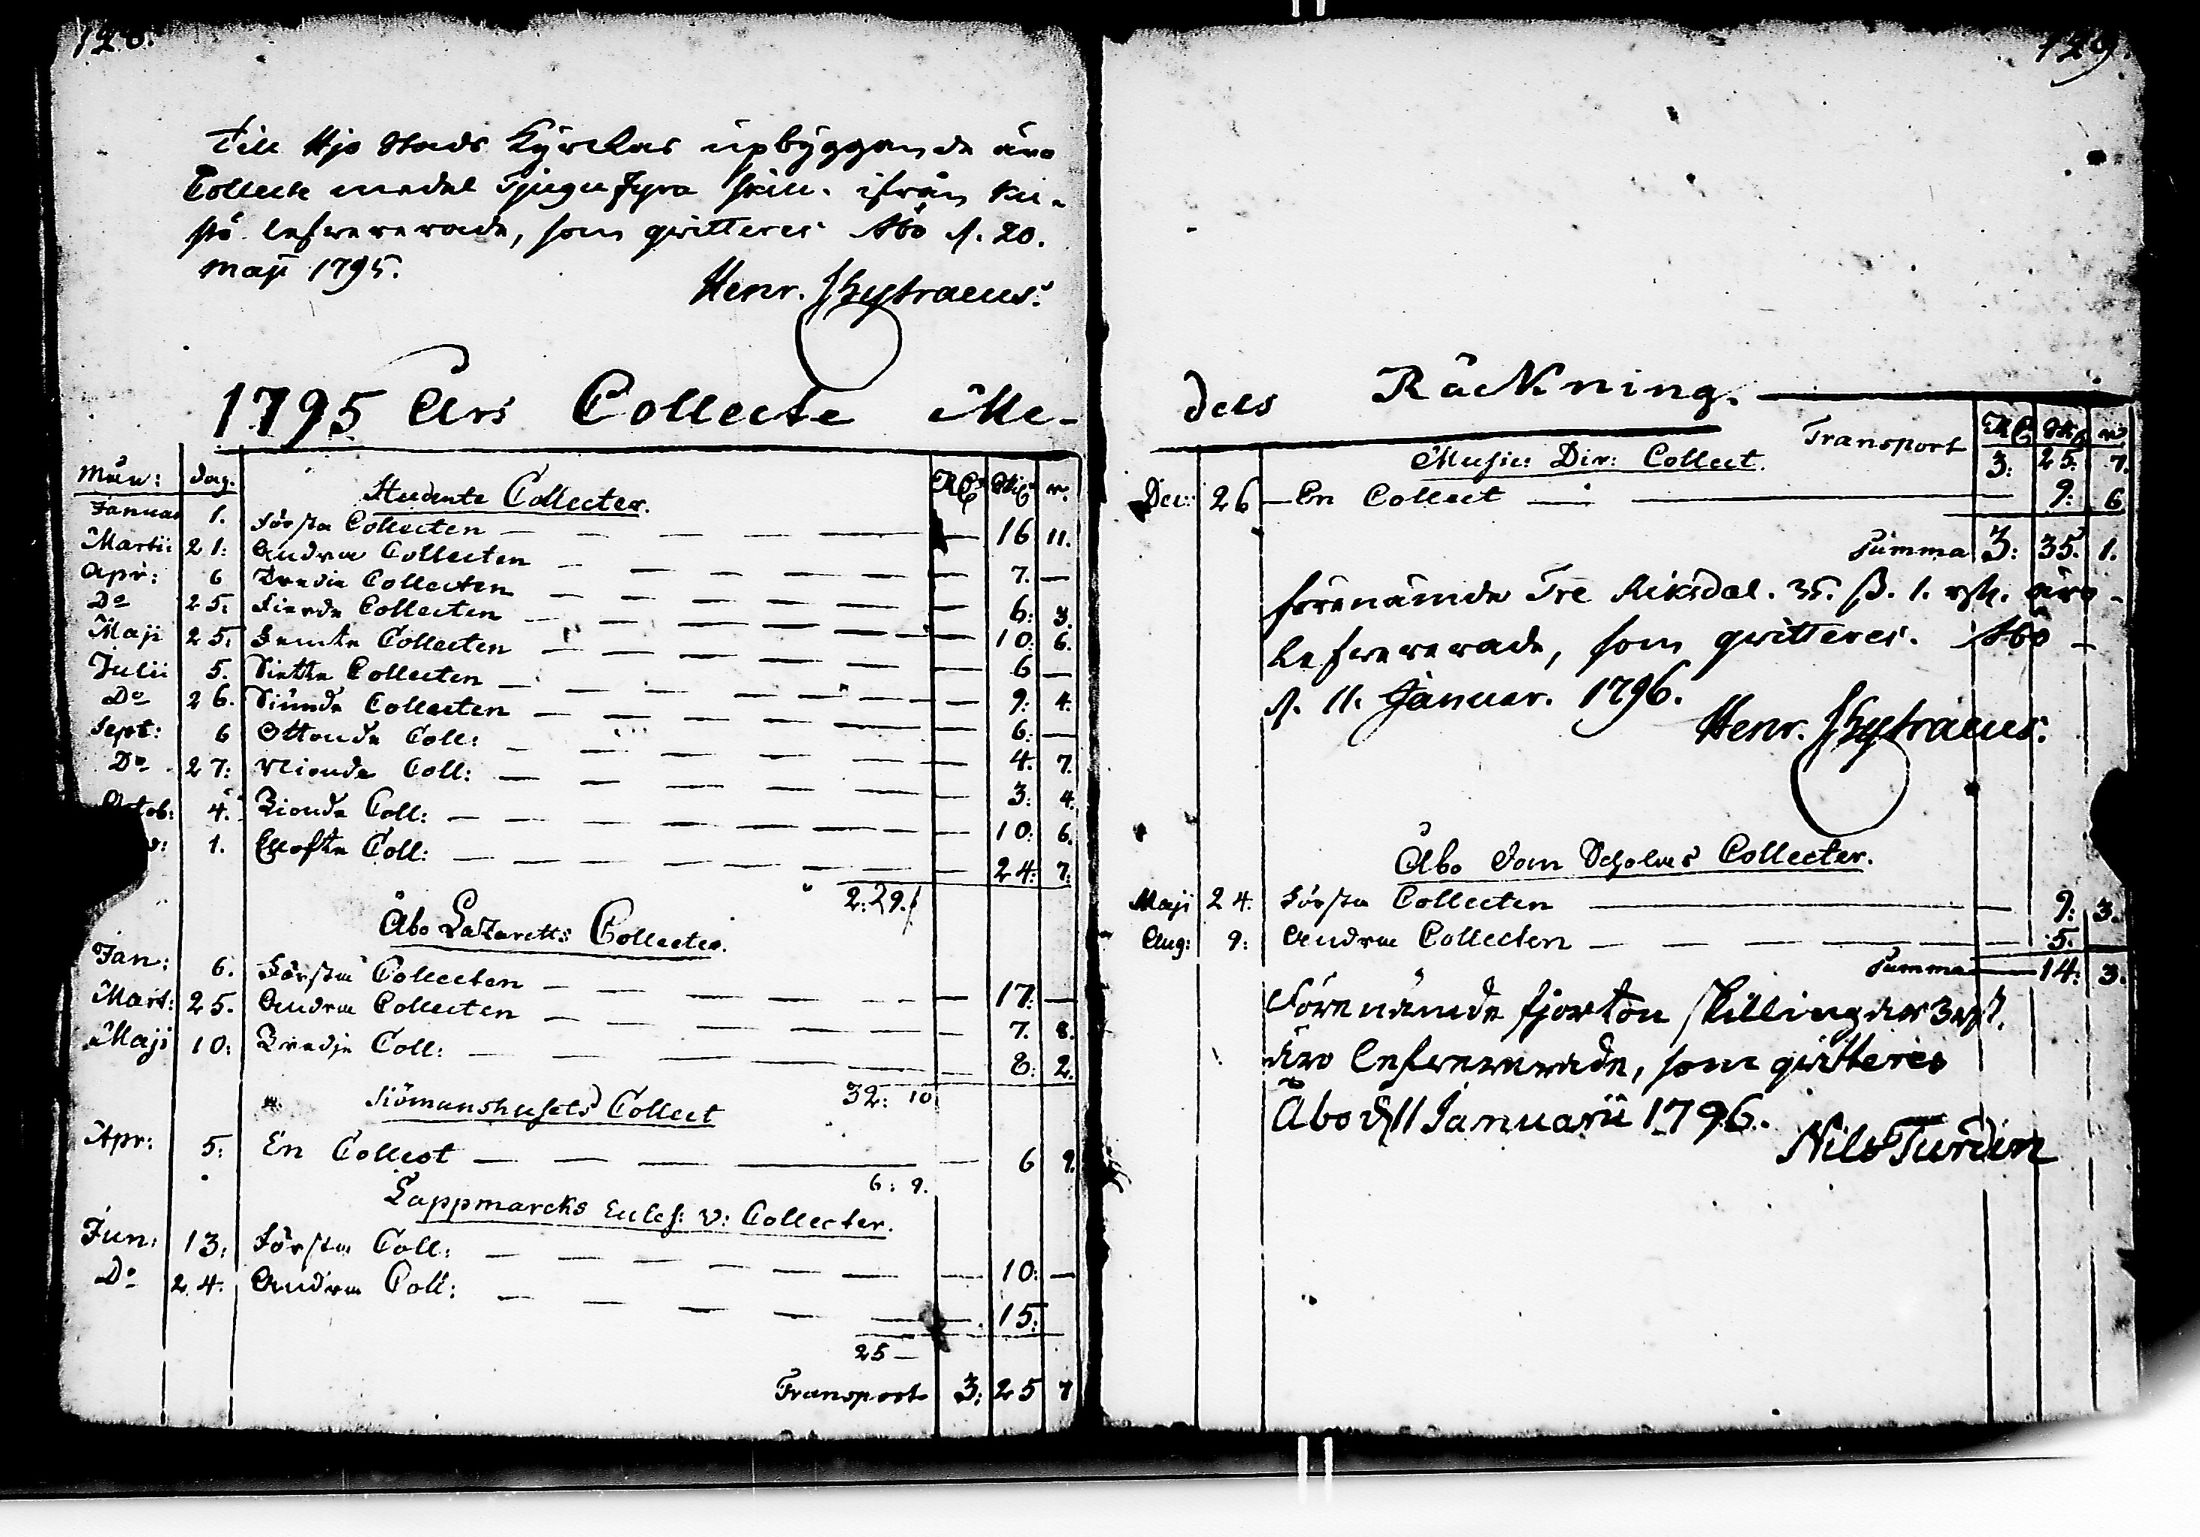 128.
Till Hjo Stads Kyrckas upbyggande äro
Collecte medel Tjugu fyra skill. ifrån Ku-
stö lefwererade, som qvitteres Åbo d. 20.
Maji 1795.
Henr. Skytraeus.
1795 Års Collecte Me-
Mån: Dag. Studente Collecter. Rd Sk. r.
Januar 1. Första Collecten — 16 11.
Martii 21. Andra Collecten — 7. —
Apr: 6 Tredie Collecten — 6: 3.
Do 25. Fierde Collecten — 10: 6.
Maji 25. Femte Collecten — 6 —
Julii 5. Siette Collecten — 9: 4.
Do 26. Siunde Collecten — 6: —
Sept: 6 Ottonde Coll: — 4. 7.
Do 27: Nionde Coll: — 3: 4.
Octob: 4. Tionde Coll: — 10: 6.
1. Ellofte Coll: — 24: 7:
2:29.1
Åbo Lazaretts Collecter.
Jan: 6. Första Collecten — 17: —
Mart: 25. Andra Collecten — 7. 8.
Maji 10: Tredje Coll: — 8: 2.
32: 10
Siömanshusets Collect
Apr: 5: En Collect — 6 9.
6: 9.
Lappmarcks Eccles: v: Collecter.
Jun: 13: Första Coll: — 10: —
Do 24: Andra Coll: — 15:
25 —
Transport 3: 25 7
129.
dels Räckning.
Transport Rd Sk r
3: 25: 7.
Music: Dir: Collect.
Dec: 26 En Collect — 9: 6
Summa 3: 35. 1.
förenämde Tre Riksdal. 35. ß. 1. rst. äro
lefwererade, som qvitteres. Åbo
d. 11. Januar. 1796.
Henr. Skytraeus.
Åbo Dom Scholæs Collecter.
Maji 24. Första Collecten — 9: 3.
Aug: 9: Andra Collecten — 5. —
Summa — 14: 3.
Förenämde fjorton skillingar 3 rst.
äro lefwererade, som qvitteres
Åbo d 11 Januarii 1796.
Nils Turdin